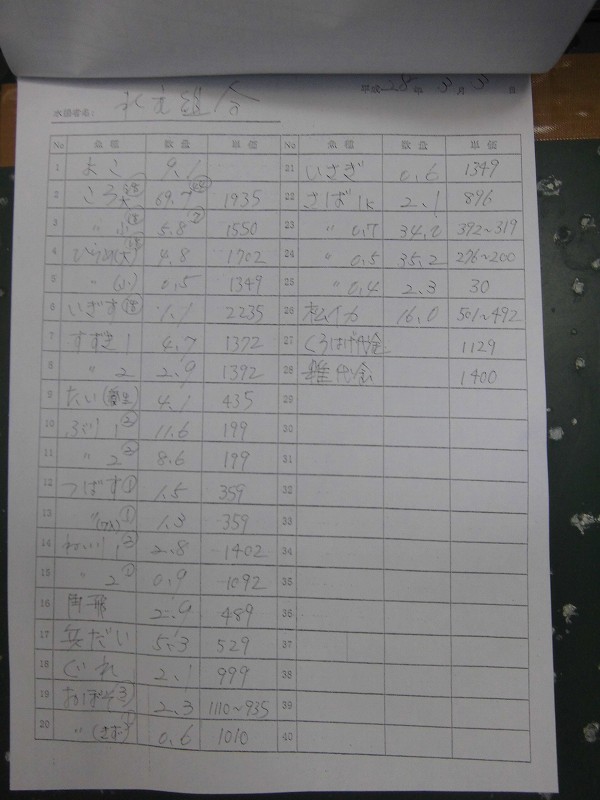 平成28年 3月3日
水揚者名:
No 魚種 数量 単価 No 魚種 数量 単価
1 まこ 9.1
2 ころ 大 69.7 1935
3 〃 小 5.8 ② 1550
4 ひらめ(大) 4.8 1702
5 〃 (小) 0.5 1349
6 いぎす 1.1 2235
7 すずき 1 4.7 1372
8 〃 2 2.9 1392
9 たい 4.1 435
10 ぶり 1 ② 11.6 199
11 〃 2 ② 8.6 199
12 つばす ① 1.5 359
13 〃 ① 1.3 359
14 1 2.8 1402
15 〃 2 0.9 1092
16 2.9 489
17 兵だい 5.3 529
18 ぐれ 2.1 999
19 おぼそ 2.3 1110~935
20 〃 0.6 1010
21 いさぎ 0.6 1349
22 さば 1K 2.1 896
23 〃 0.7 34.0 392~319
24 〃 0.5 35.2 276~200
25 〃 0.4 2.3 30
26 松イカ 16.0 501~492
27 くろはげ代金 1129
28 雑代金 1400
29
30
31
32
33
34
35
36
37
38
39
40